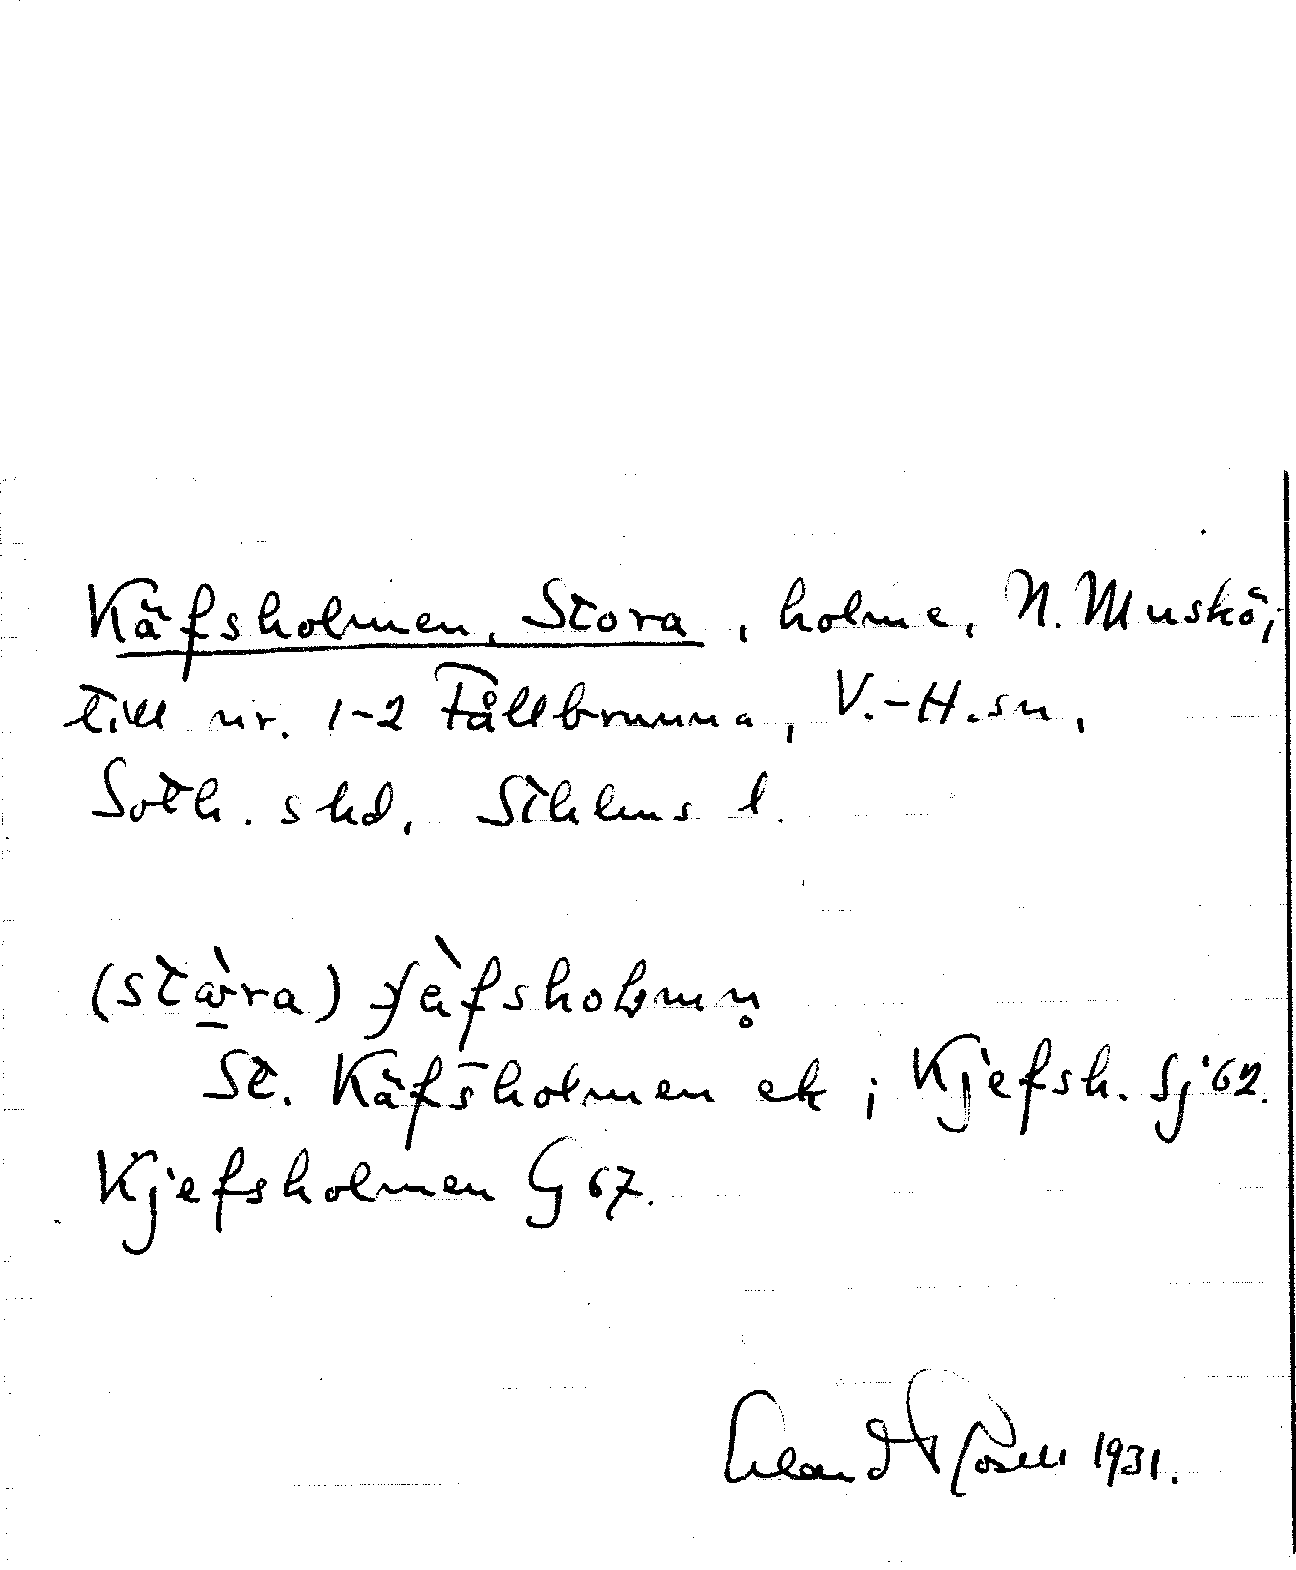 Käfsholmen, Stora, holme, N. Muskö,
till nr. 1-2 Fållbrunna, V.-H.sn,
Soth. skd, Sthlms l.
(stɷ̀ra) ʃä̀fsholmn̥
St. Käfsholmen ek; Kjefsh. Sj 62.
Kjefsholmen G 67.
Erland Rosell 1931.